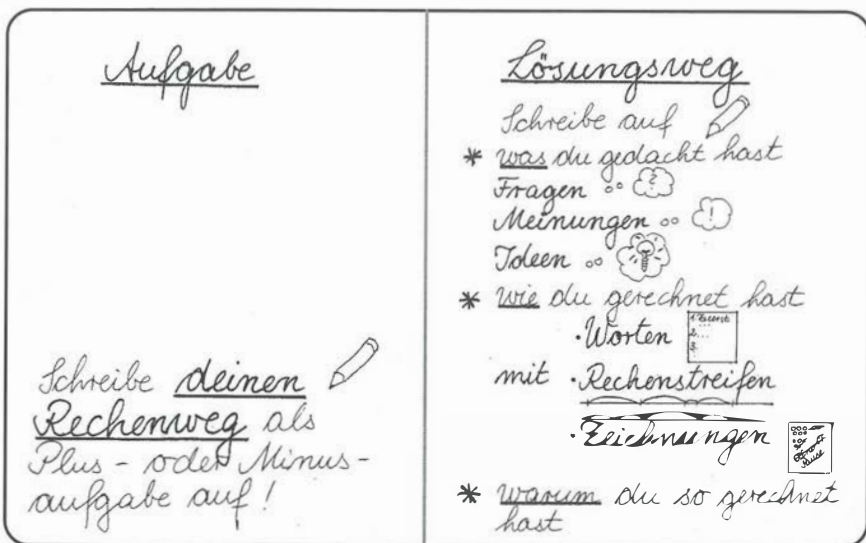 Aufgabe
Schreibe deinen
Rechenweg als
Plus- oder Minus-
aufgabe auf!
Lösungsweg
Schreibe auf
* was du gedacht hast
Fragen ?
Meinungen !
Ideen
* wie du gerechnet hast
· Worten
1. Zuerst
2. ...
3.
mit · Rechenstreifen
· Zeichnungen
* warum du so gerechnet
hast